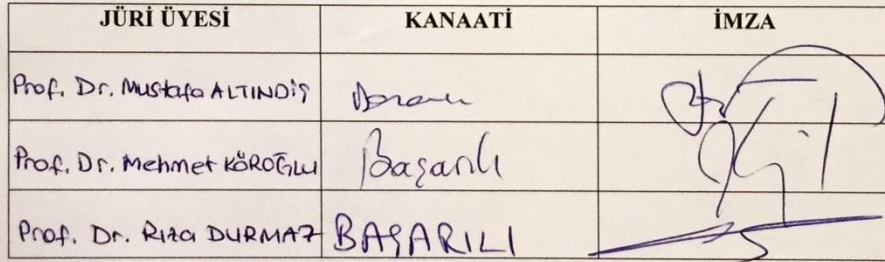 JÜRİ ÜYESİ KANAATİ İMZA
Prof. Dr. Mustafa ALTINDİŞ
Prof. Dr. Mehmet KÖROĞLU Başarılı
Prof. Dr. Rıza DURMAZ BAŞARILI